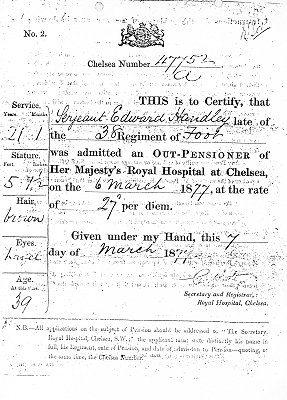 No. 2.
Chelsea Number 47752
A
THIS is to Certify, that
Sergeant Edward Handley late of
the 38 Regiment of Foot
was admitted an OUT-PENSIONER of
Her Majesty's Royal Hospital at Chelsea,
on the 6 March 1877, at the rate
of 27d per diem.
Given under my Hand, this 7
day of March 1877
Secretary and Registrar,
Royal Hospital, Chelsea.
Service.
Years. Months.
21 1
Stature.
Feet. Inches.
Hair.
brown
Eyes.
hazel
Age.
At this Date.
39
N.B.—All applications on the subject of Pension should be addressed to "The Secretary,
Royal Hospital, Chelsea, S.W.;" the applicant must state distinctly his name in
full, his Regiment, rate of Pension, and date of admission to Pension—quoting, at
the same time, the Chelsea Number.